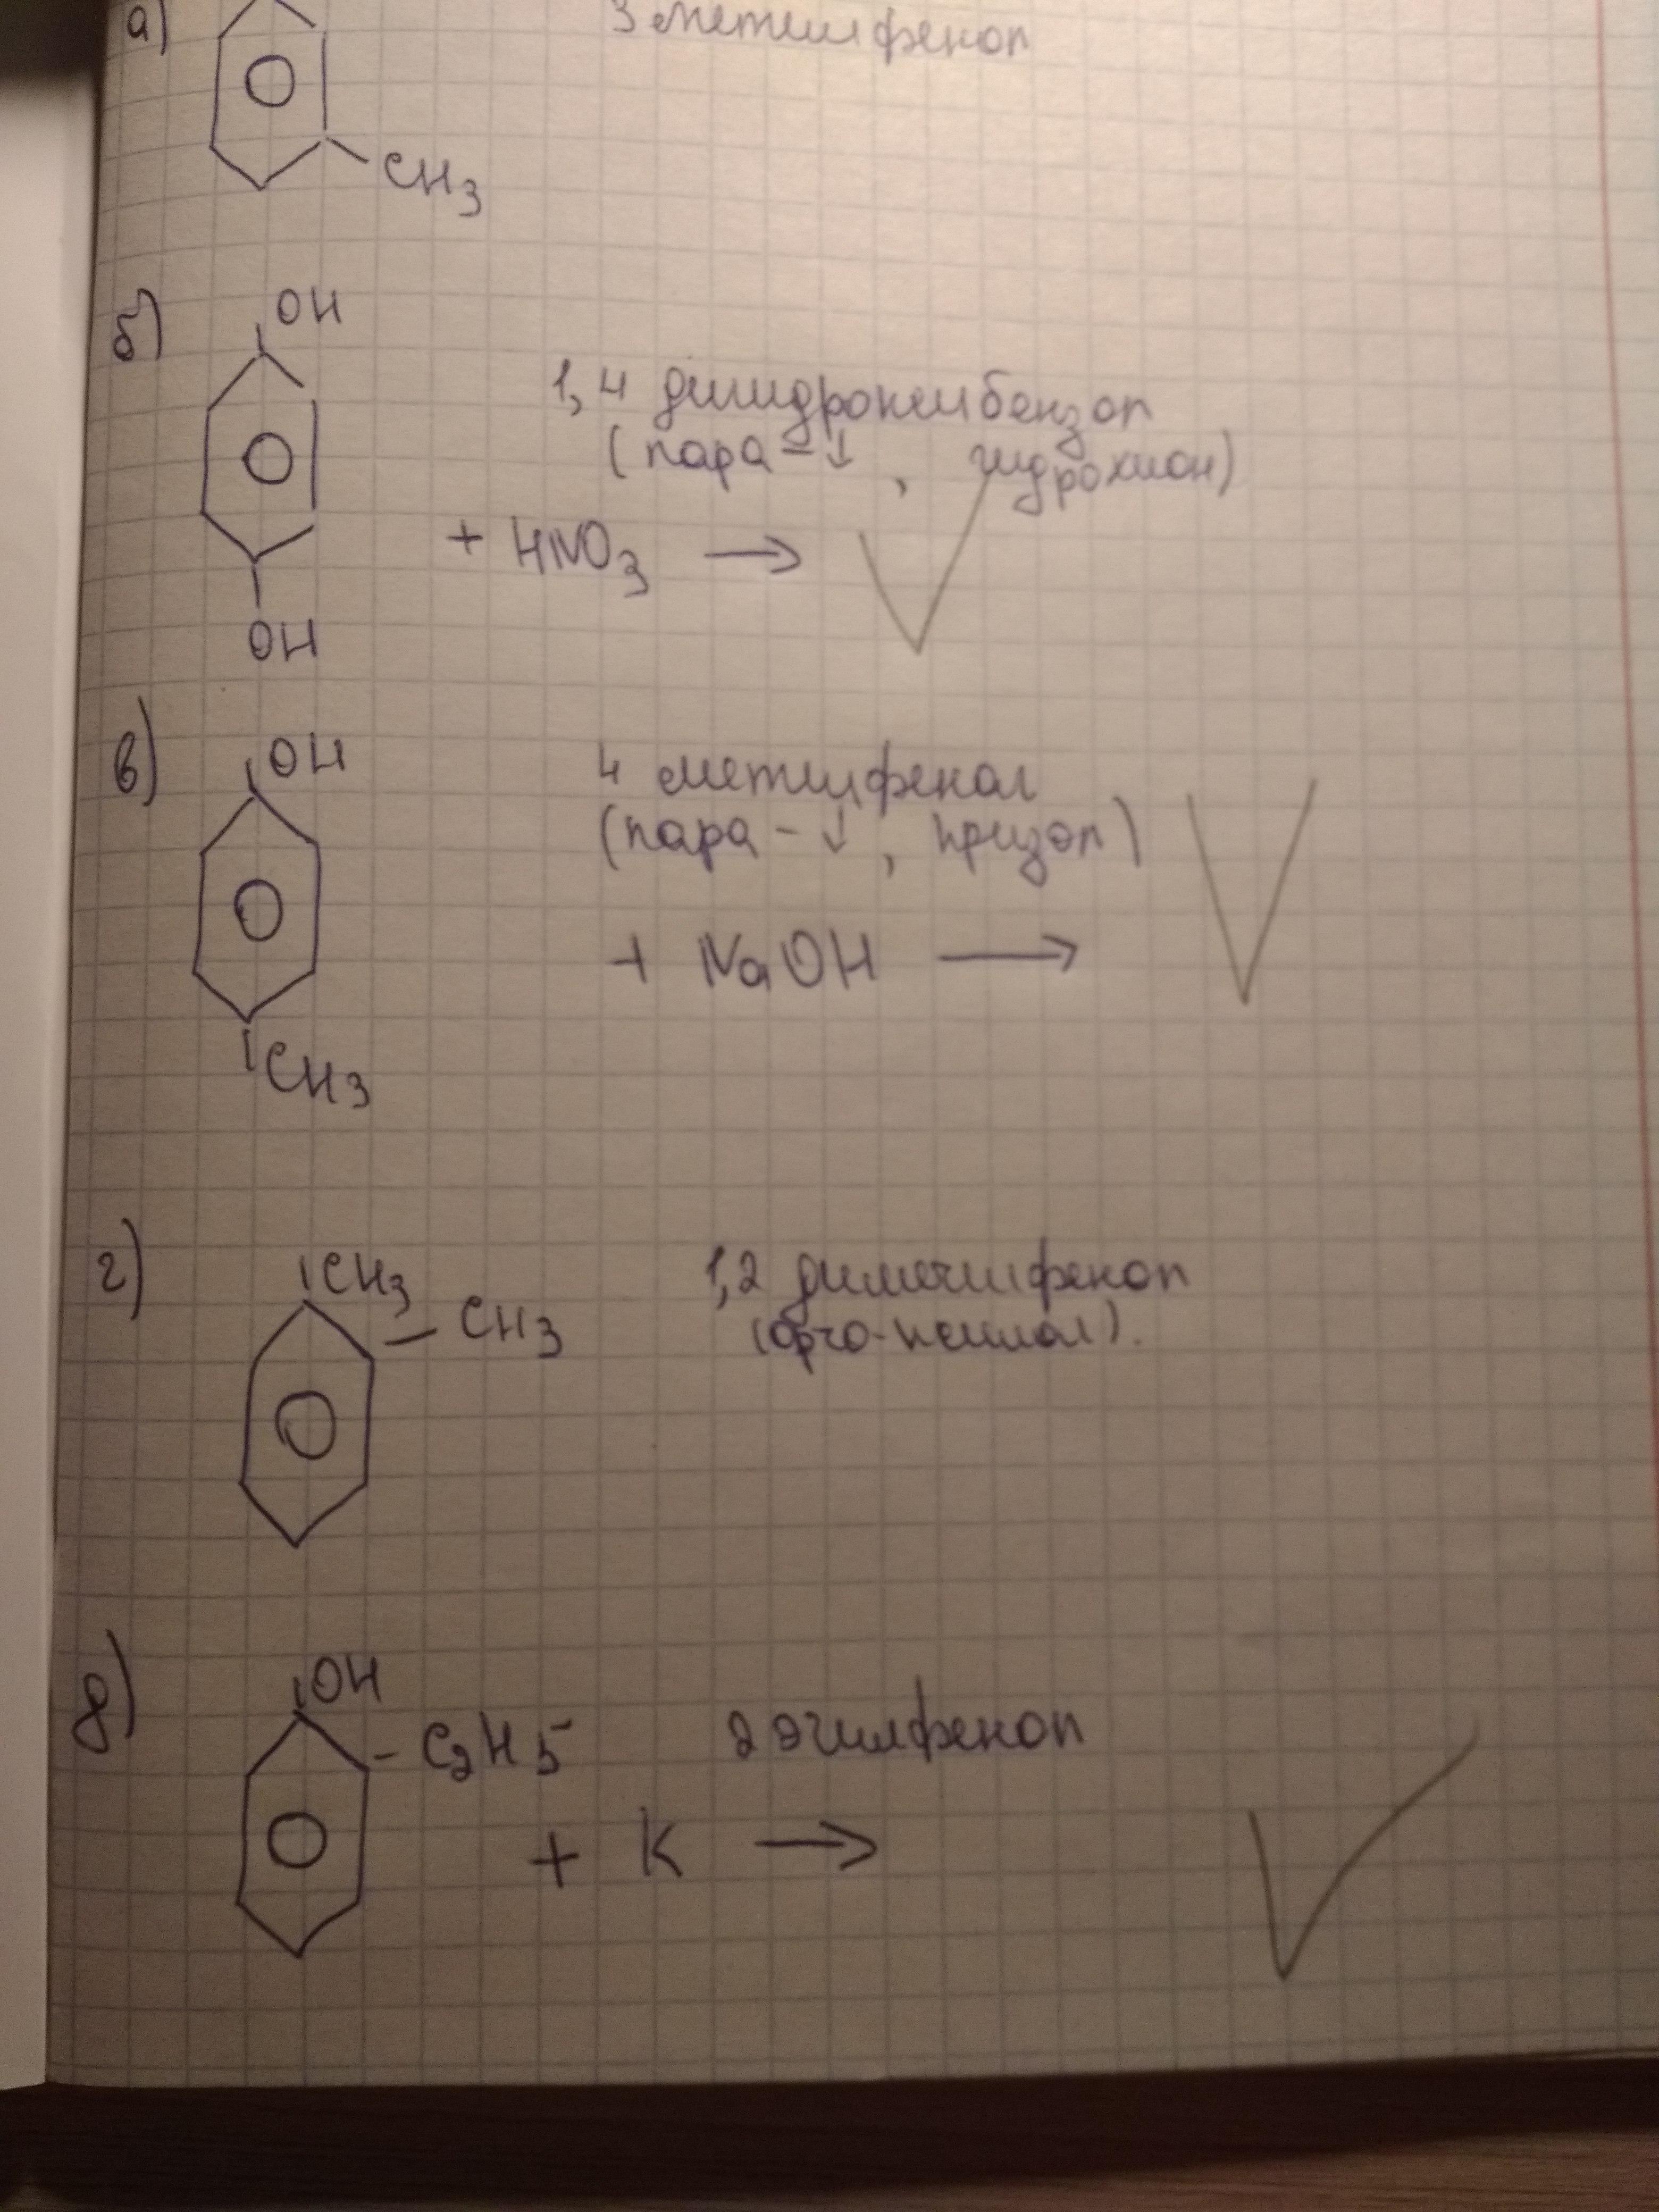 а)
3 метилфенол
CH3
б)
OH
1,4 дигидроксибензол
(пара-↓, гидрохинон)
+ HNO3 →
OH
в)
OH
4 метилфенол
(пара-↓, крезол)
+ NaOH →
CH3
г)
CH3
CH3
1,2 диметилфенол
(орто-ксилол).
д)
OH
C2H5
2 этилфенол
+ K →